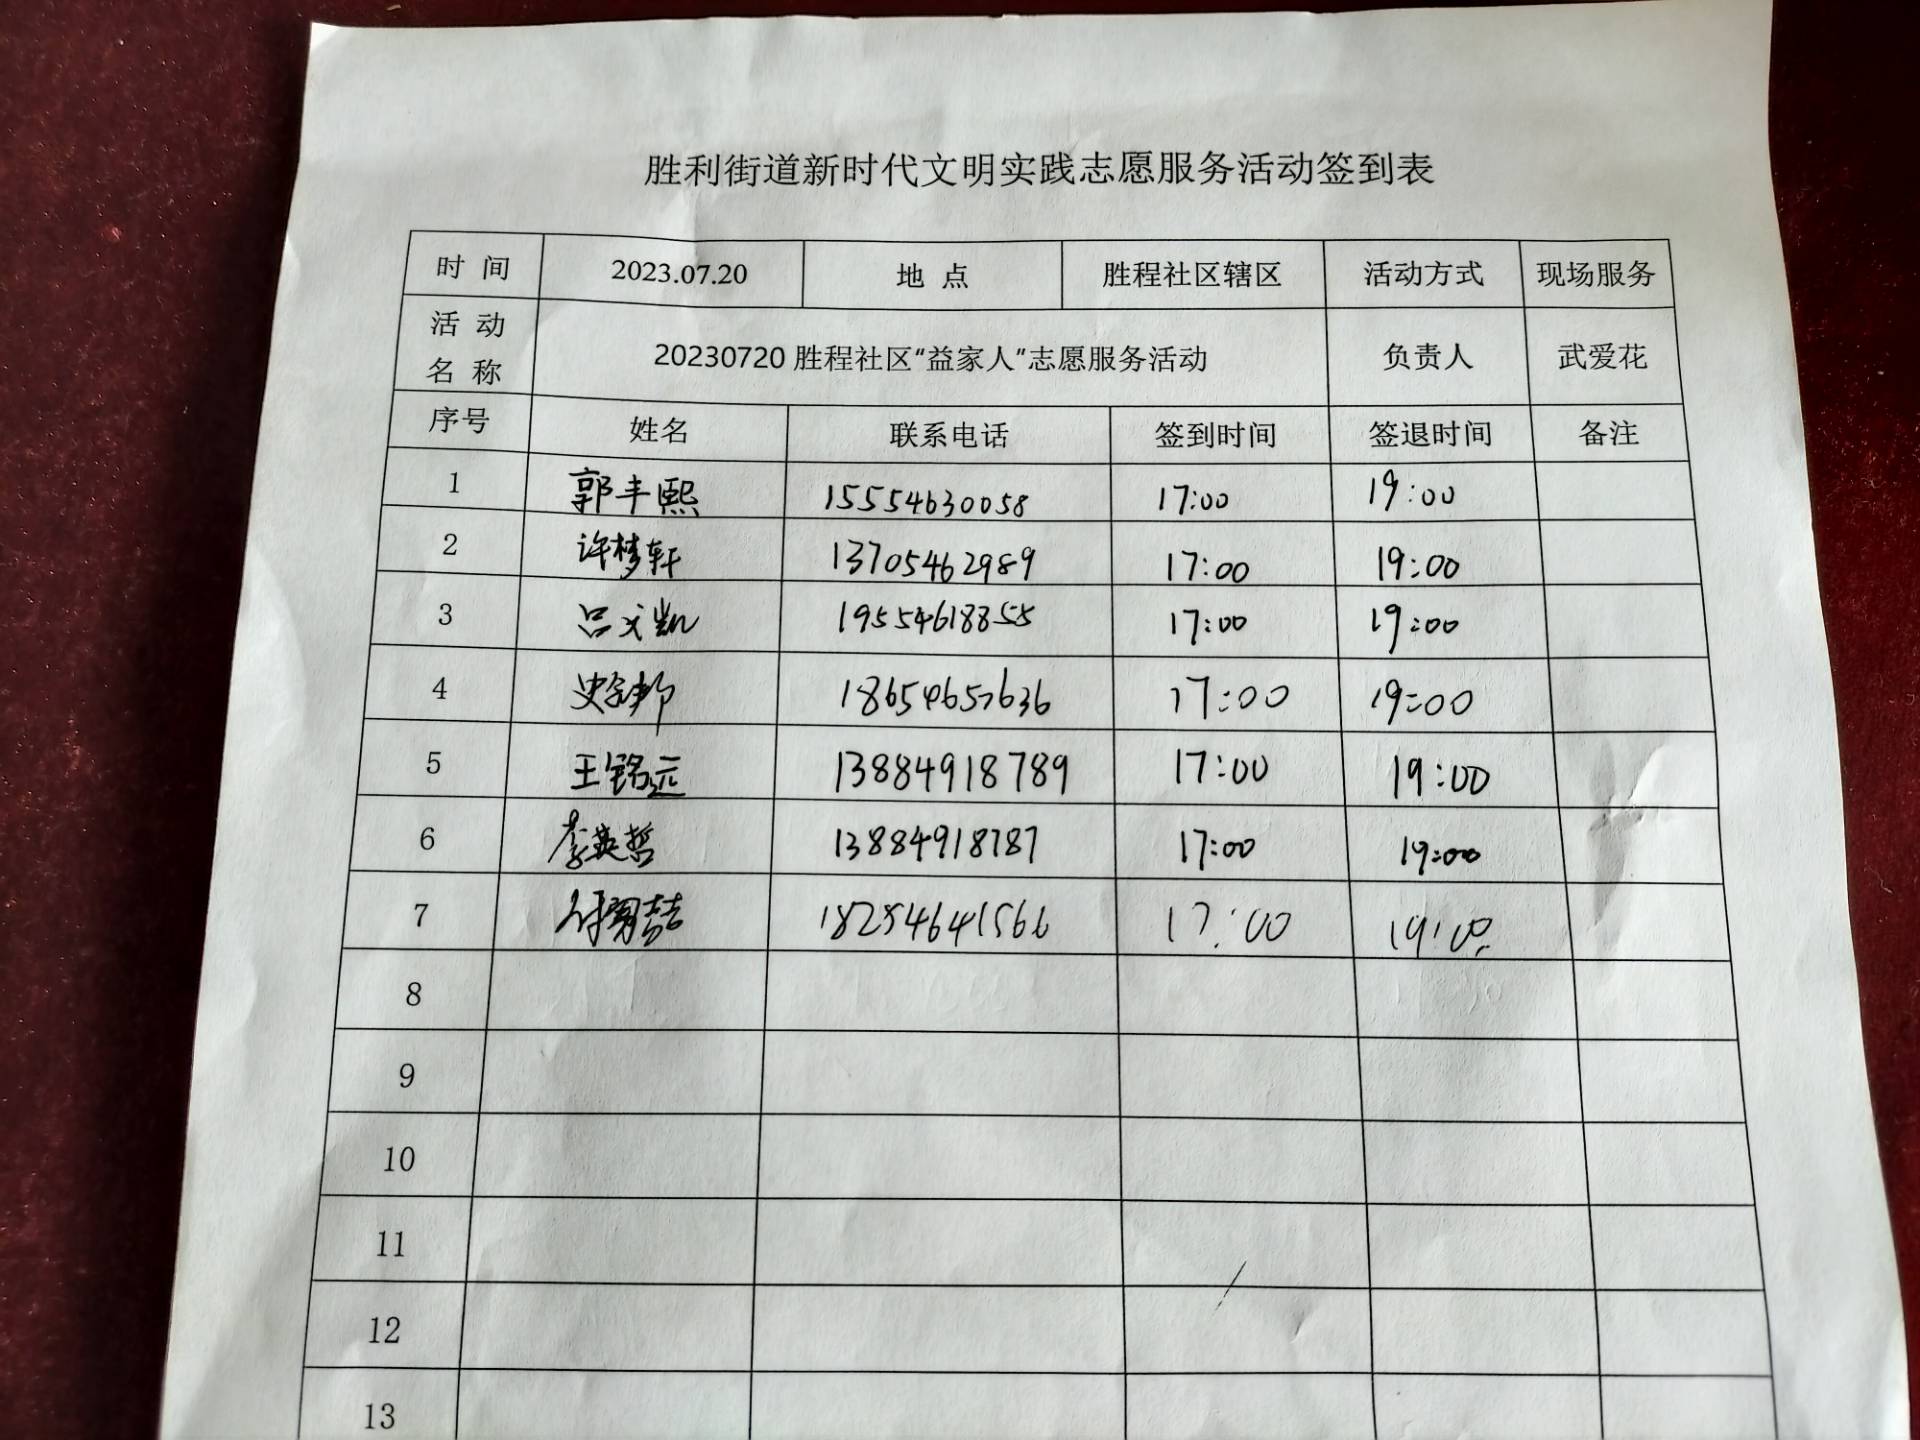 胜利街道新时代文明实践志愿服务活动签到表
时 间 2023.07.20 地 点 胜程社区辖区 活动方式 现场服务
活 动 名 称 20230720 胜程社区“益家人”志愿服务活动 负责人 武爱花
序号 姓名 联系电话 签到时间 签退时间 备注
1 郭丰熙 15554630058 17:00 19:00
2 许梦轩 13705462989 17:00 19:00
3 吕文凯 19554618855 17:00 19:00
4 18654657636 17:00 19:00
5 王铭远 13884918789 17:00 19:00
6 李英哲 13884918787 17:00 19:00
7 18254641566 17:00 19:00
8
9
10
11
12
13